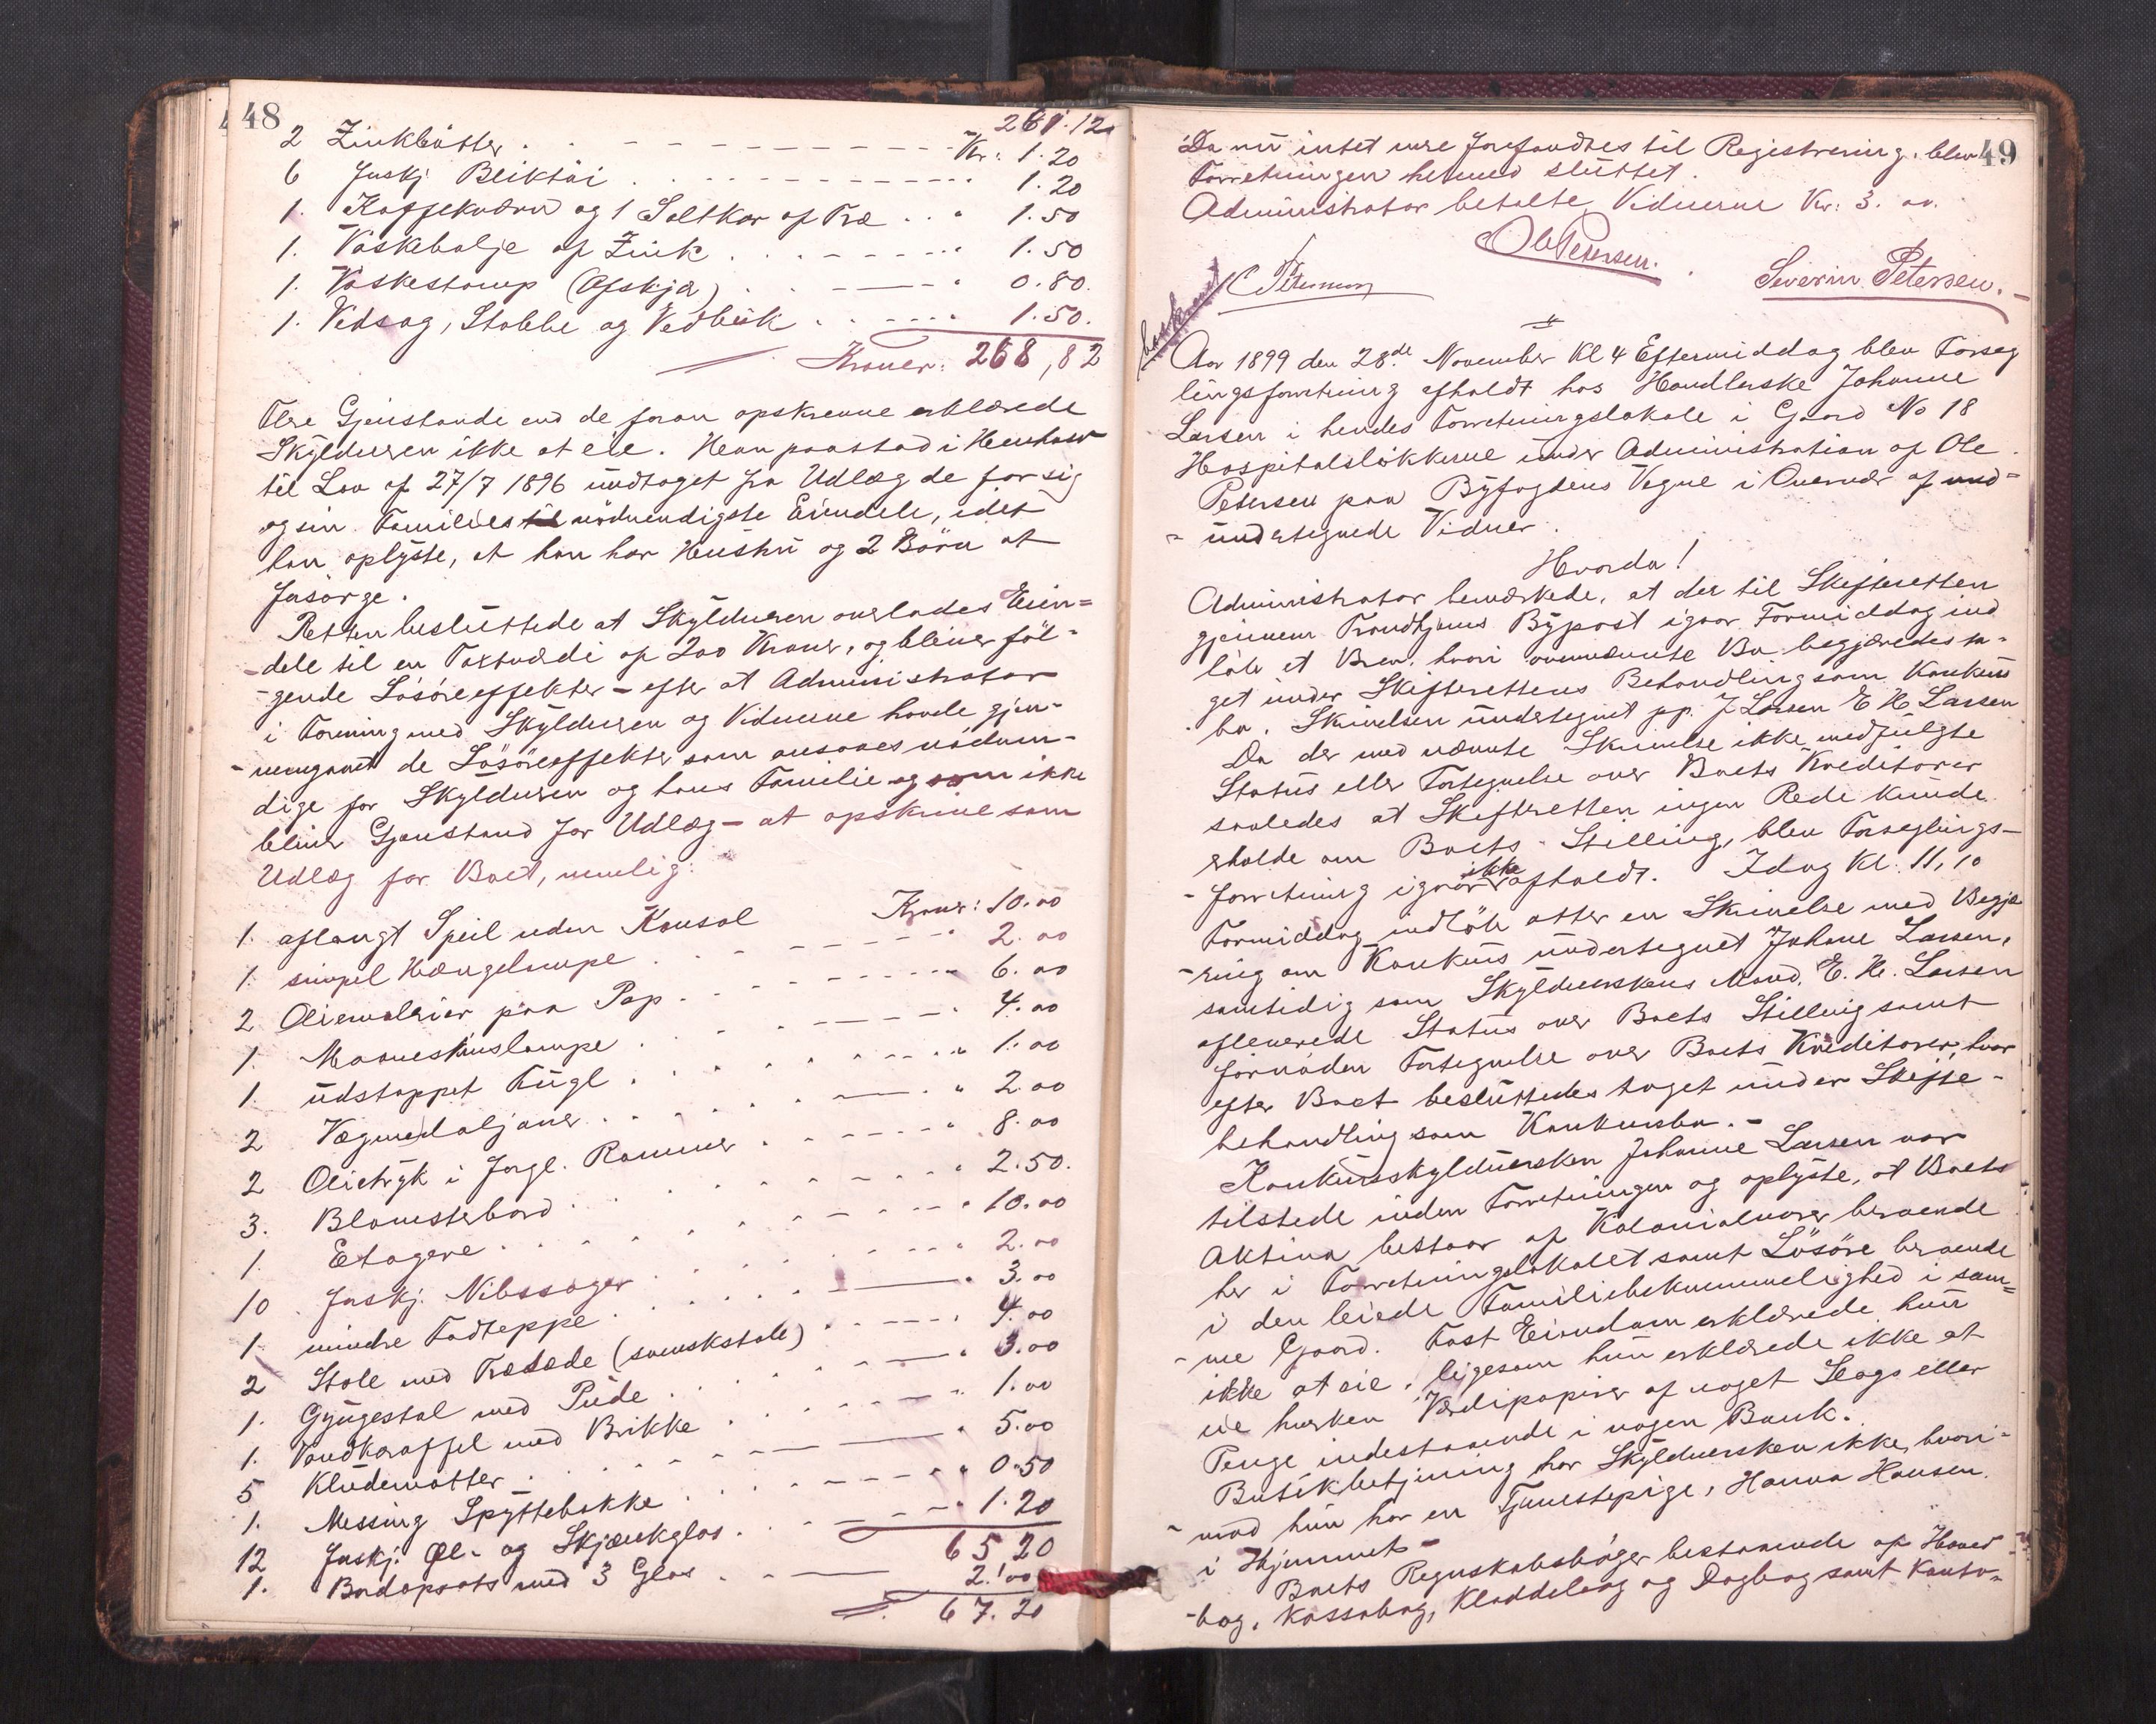 48
261.12
2 Zinkbøtter Kr: 1.20
6 forskj Bliktøi 1.20
1. Kaffekværn og 1 Saltkar af Træ 1.50
1. Vaskebalje af Zink 1.50
1. Vaskestamp (Afskja) 0.80.
1. Vedsag, Stabbe og Vedbuk 1.50.
Kroner: 268,82
Flere Gjenstande end de foran opskrevne erklærede
Skyldneren ikke at eie. Han paastod i Henhold
til Lov af 27/7 1896 undtaget fra Udlæg de for sig
og sin Families til nødvendigste Eiendele, idet
han oplyste, at han har Hustru og 2 Børn at
forsørge.
Retten besluttede at Skyldneren overlades Eien=
-dele til en Taxtværdi af 200 Kroner, og bliver føl-
-gende Løsøreeffekter - efter at Administrator
i Forening med Skyldneren og Vidnerne havde gjen-
-nemgaaet de Løsøreeffekter som ansaaes nødven-
dige for Skyldneren og hans Familie og som ikke
bliver Gjenstand for Udlæg - at opskrive som
Udlæg for Boet, nemlig:
1. aflangt Speil uden Konsol Kroner: 10.00
1. simpel Hængelampe 2.00
2 Oliemalrier paa Pap 6.00
1. Maaneskinslampe 4.00
1. udstoppet Fugl 1.00
2 Vægmedaljoner 2.00
2 Olietryk i forgl. Rammer 8.00
3. Blomsterbord 2.50.
1. Etagere 10.00
10 forskj. Nibssager 2.00
1. mindre Fodteppe 3.00
2 Stole med Træsæde (svenskstole) 4.00
1. Gyngestol med Pude 3.00
1. Vandkaraffel med Brikke 1.00
5 Kludematter 5.00
1. Messing Spyttebakke 0.50
12 forskj. Øl- og Skjænkglas 1.20
65.20
1. Bordopsats med 3 Glas 2.00
67.20
49
Da nu intet mere forefandtes til Registrering, blev
Forretningen hermed sluttet.
Administrator betalte Vidnerne Kr: 3.00.
Ole Petersen.
C Petersen
Severin Petersen.
Aar 1899 den 28de November Kl 4 Eftermiddag blev Forseg
lingsforretning afholdt hos Handlerske Johanne
Larsen i hendes Forretningslokale i Gaard No 18
Hospitalsløkkerne under Administration af Ole
Petersen paa Byfogdens Vegne i Overvær af und=
= undertegnede Vidner.
Hvorda!
Administrator bemærkede, at der til Skifteretten
gjennem Trondhjems Bypost igaar Formiddag ind
løb et Brev, hvori ovennævnte Bo begjæredes ta-
get under Skifterettens Behandling som Konkurs
bo. Skrivelsen undertegnet pp. J Larsen E H Larsen
Da der med nævnte Skrivelse ikke medfulgte
Status eller Fortegnelse over Boets Kreditorer
saaledes at Skifteretten ingen Rede kunde
erholde om Boets Stilling, blev Forseglings-
-forretning igaar ikke afholdt. Idag Kl. 11,10
Formiddag indløb atter en Skrivelse med Begjæ
-ring om Konkurs undertegnet Johane Larsen,
samtidig som Skyldnerskens Mand, E. H. Larsen
afleverede Status over Boets Stilling samt
fornøden Fortegnelse over Boets Kreditorer, hvor
efter Boet besluttedes taget under Skifte-
behandling som Konkursbo.-
Konkursskyldnersken Johanne Larsen var
tilstede under Forretningen og oplyste, at Boets
Aktiva bestaar af Kolonialvarer beroende
her i Forretningslokalet samt Løsøre beroende
i den leiede Familiebekvemmelighed i sam=
-me Gaard. Fast Eiendom erklærede hun
ikke at eie, ligesom hun erklærede ikke at
eie hverken Værdipapirer af noget Slags eller
Penge indestaaende i nogen Bank.
Butikbetjening har Skyldnersken ikke, hvori-
-mod hun har en Tjenestepige, Hanna Hansen
i Hjemmet-
Boets Regnskabsbøger bestaaende af Hoved
-bog, Kassabog, Kladdebog og Dagbog samt Konto-